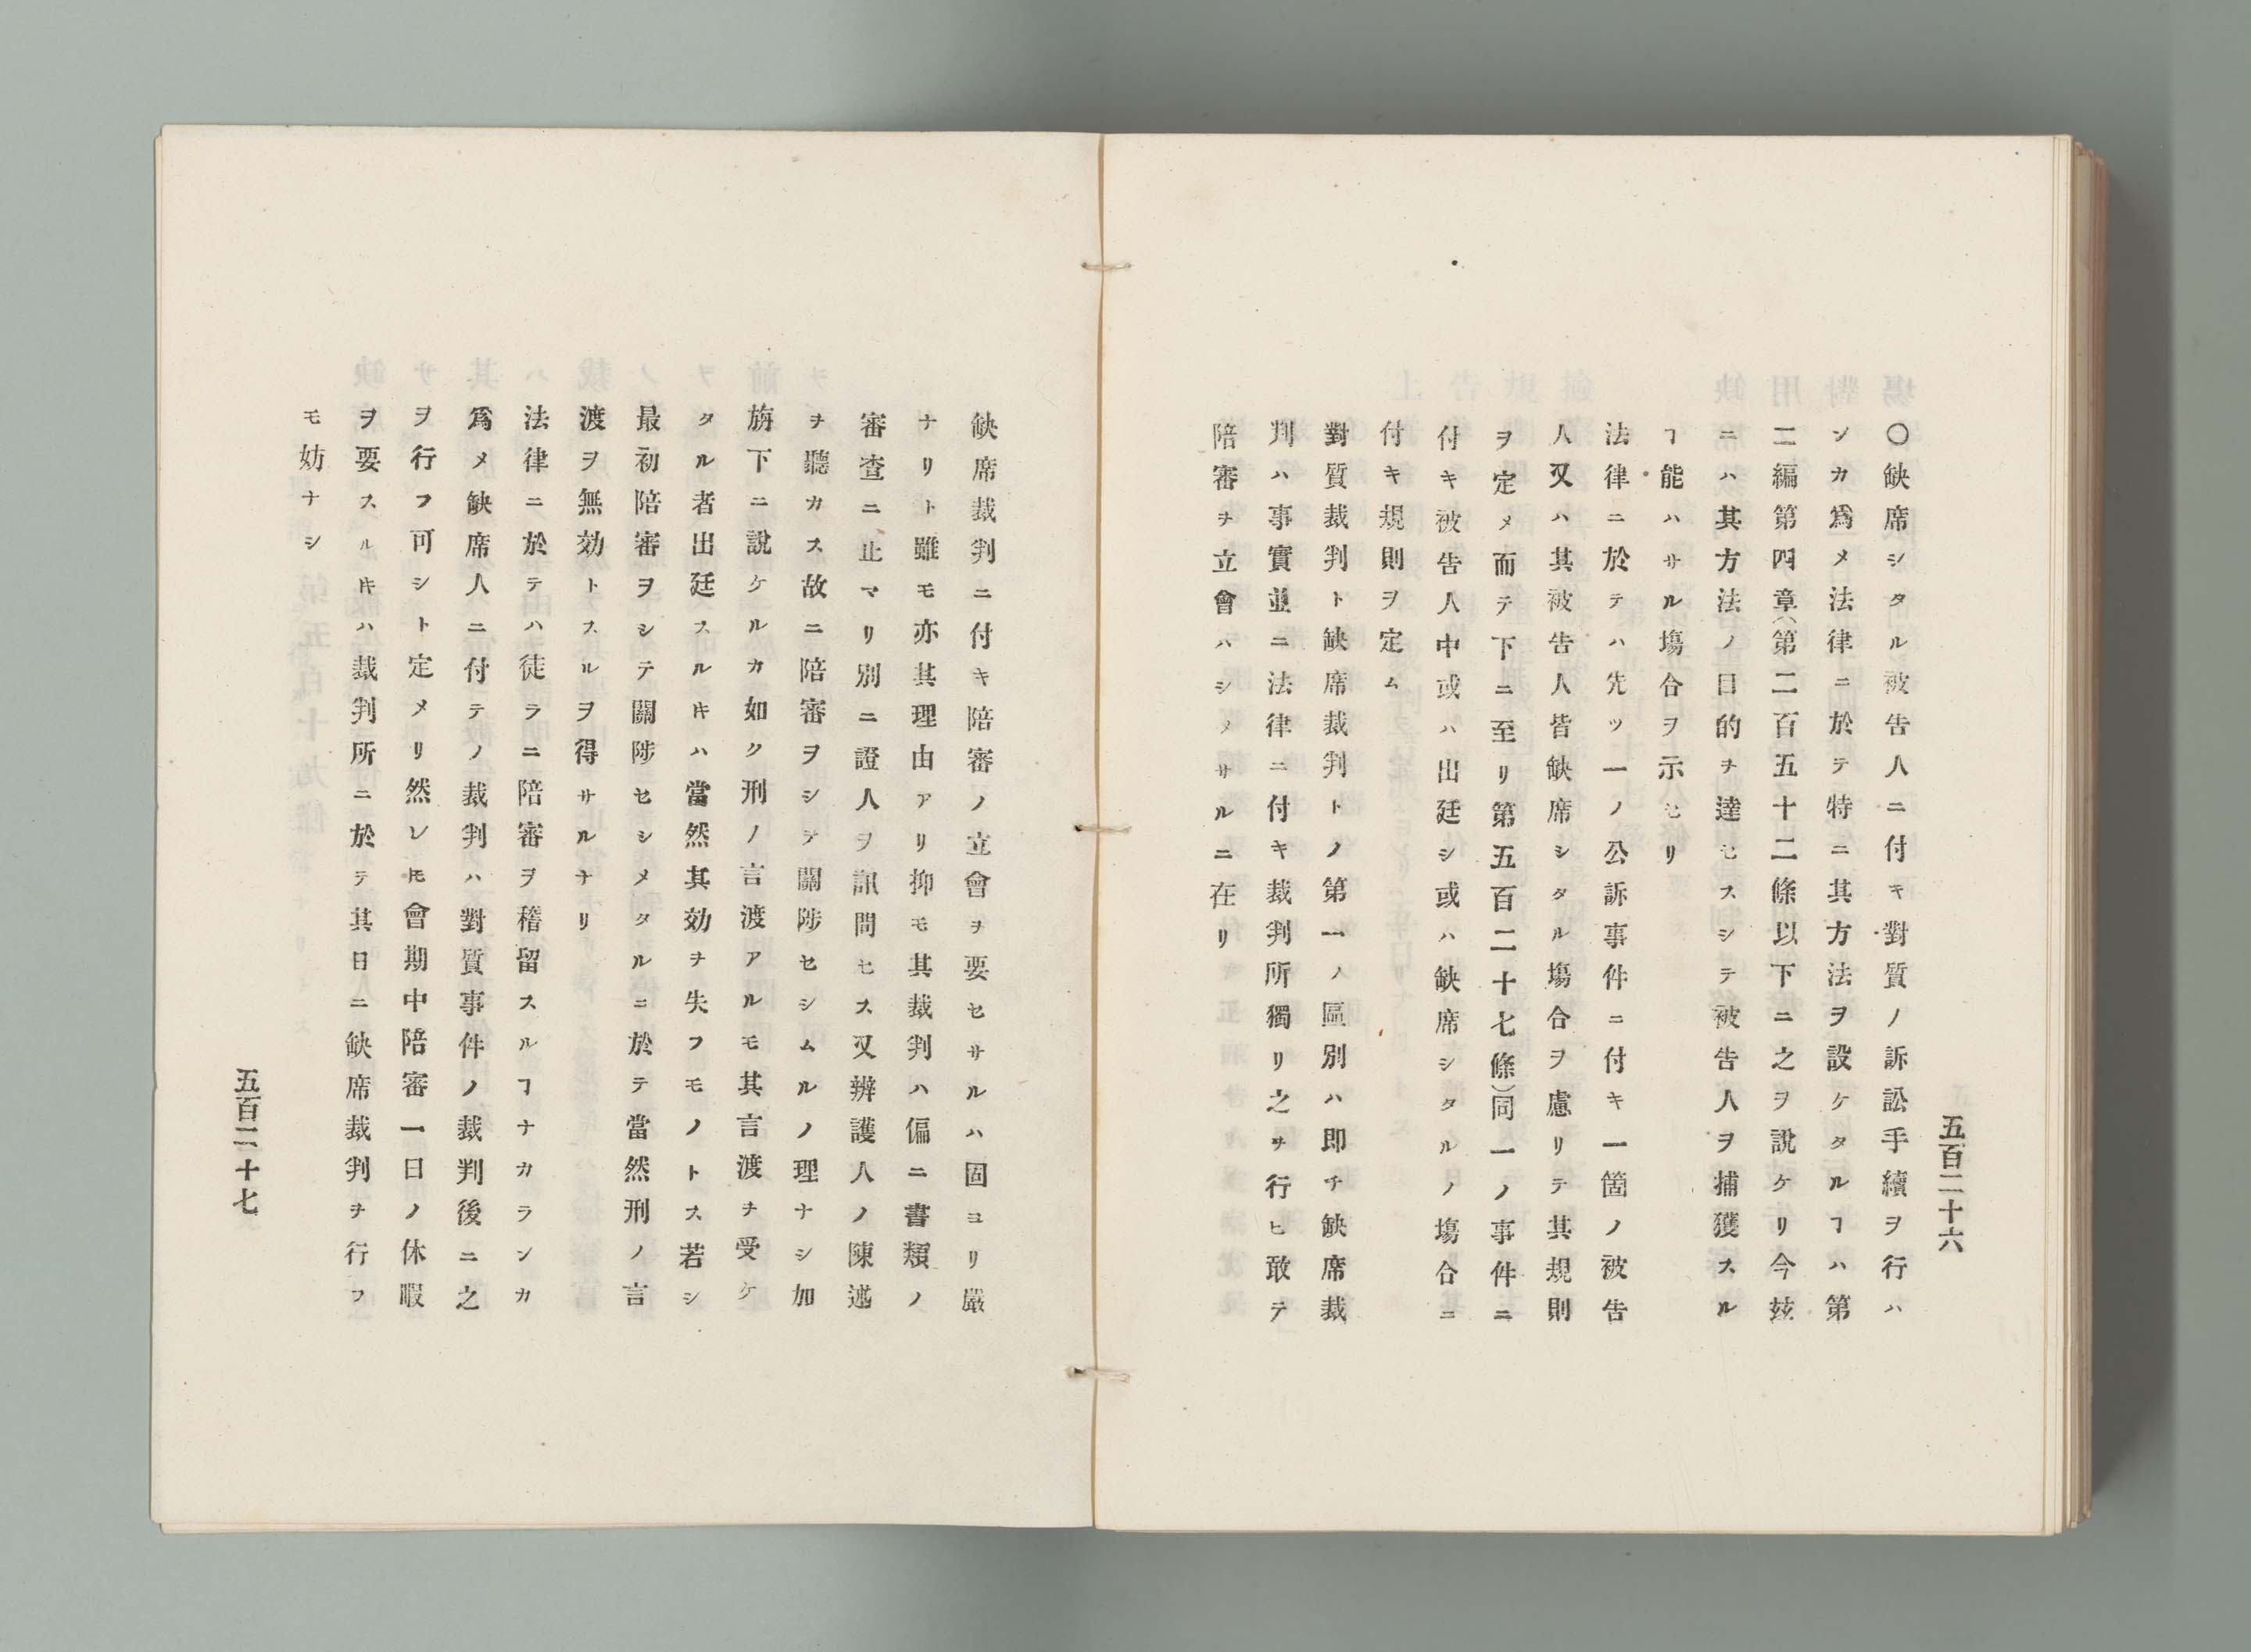 五百二十六
〇缺席シタル被告人ニ付キ對質ノ訴訟手續ヲ行ハ
ンカ爲メ法律ニ於テ特ニ其方法ヲ設ケタルヿハ第
二編第四章(第二百五十二條以下ニ之ヲ説ケリ今玆
ニハ其方法ノ目的チ達セスシテ被告人ヲ捕獲スル
ヿ能ハサル塲合ヲ示セリ
法律ニ於テハ先ツ一ノ公訴事件ニ付キ一箇ノ被告
人又ハ其被告人皆缺席シタル塲合ヲ慮リテ其規則
ヲ定メ而テ下ニ至リ第五百二十七條)同一ノ事件ニ
付キ被告人中或ハ出廷シ或ハ缺席シタルノ塲合ニ
付キ規則ヲ定ム
對質裁判ト缺席裁判トノ第一ノ區別ハ即チ缺席裁
判ハ事實並ニ法律ニ付キ裁判所獨リ之ヲ行ヒ敢テ
陪審チ立會ハシメサルニ在リ
缺席裁判ニ付キ陪審ノ立會ヲ要セサルハ固ヨリ嚴
ナリト雖モ亦其理由アリ抑モ其裁判ハ偏ニ書類ノ
審査ニ止マリ別ニ證人ヲ訊問セス又辨護人ノ陳述
チ聽カス故ニ陪審ヲシテ關陟セシムルノ理ナシ加
旃下ニ說ケルカ如ク刑ノ言渡アルモ其言渡チ受ケ
タル者出廷スル𪜈ハ當然其効チ失フモノトス若シ
最初陪審ヲシテ關陟セシメタルニ於テ當然刑ノ言
渡ヲ無効トスルヲ得サルナリ
法律ニ於テハ徒ラニ陪審ヲ稽留スルヿナカランカ
爲メ缺席人ニ付テノ裁判ハ對質事件ノ裁判後ニ之
ヲ行フ可シト定メリ然レ𪜈會期中陪審一日ノ休暇
ヲ要スルキハ裁判所ニ於テ其日ニ缺席裁判チ行フ
モ妨ナシ
五百二十七